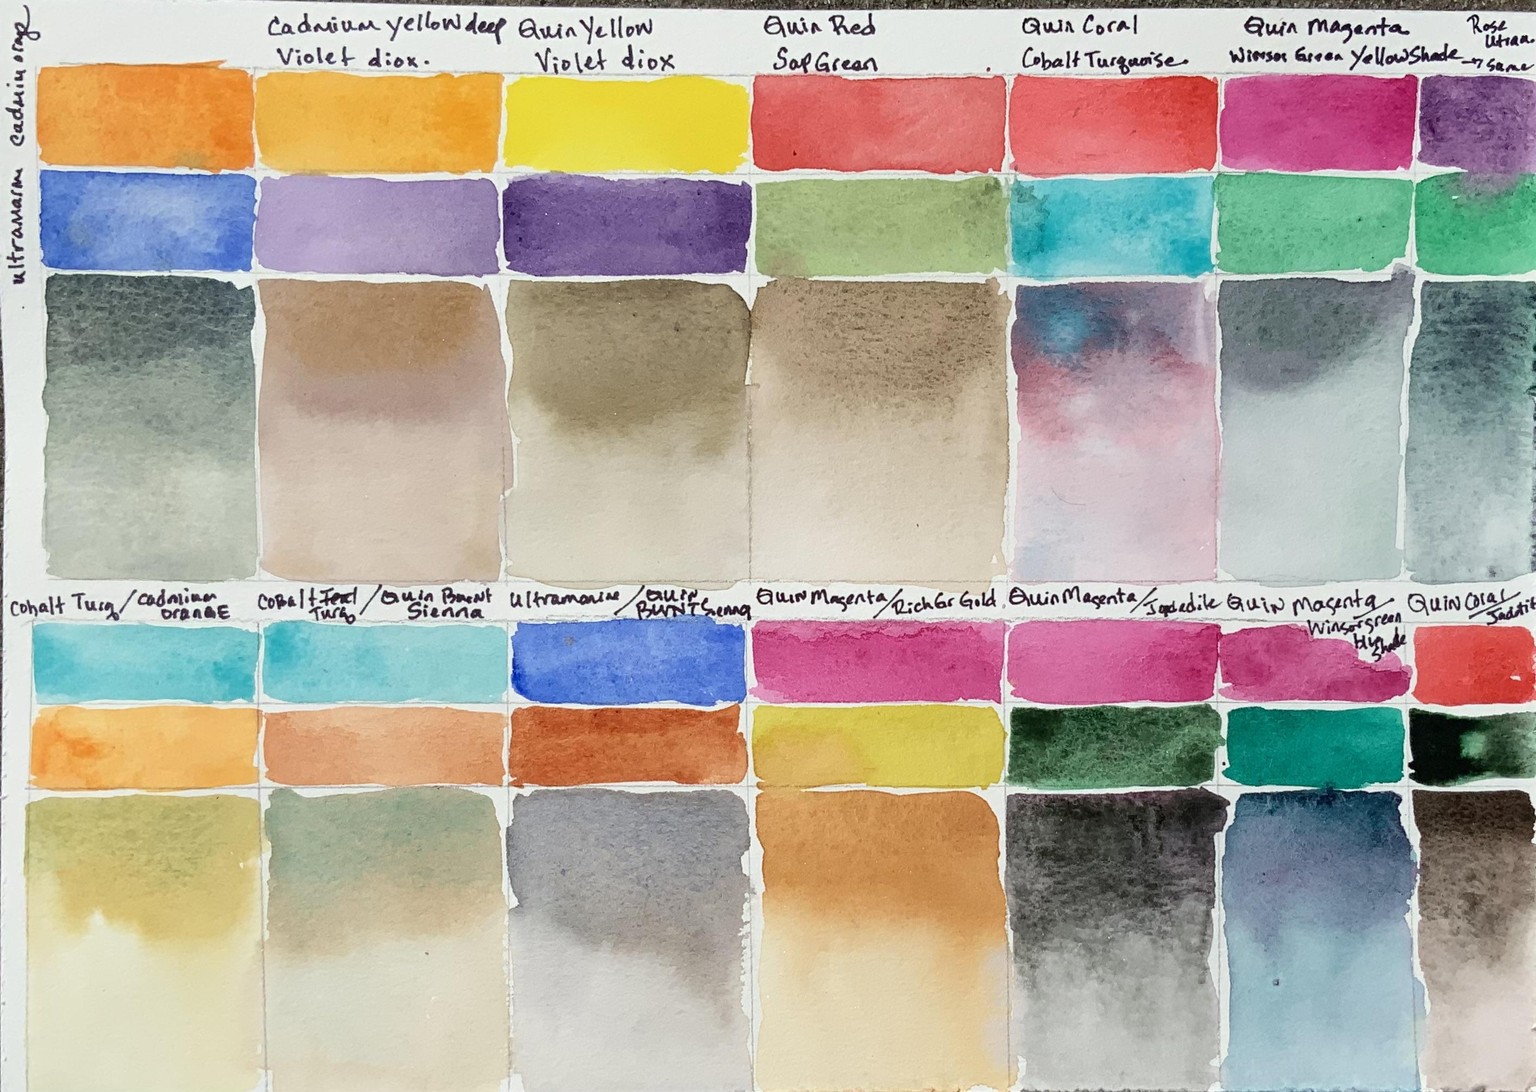 cadmium orange
ultramarine
Cadmium yellow deep
Violet diox.
Quin Yellow
Violet diox
Quin Red
Sap Green
Quin Coral
Cobalt Turquoise
Quin Magenta
Winsor Green Yellow Shade
Rose
Ultra.
→ same
Cobalt Turq/cadmium
orange
Cobalt Teal/Quin Burnt
Turq Sienna
Ultramarine/Quin
Burnt Sienna
Quin Magenta/Rich Gr Gold
Quin Magenta/Jadedite
Quin Magenta/
Winsor green
blue
Shade
Quin Coral/
Jadeit